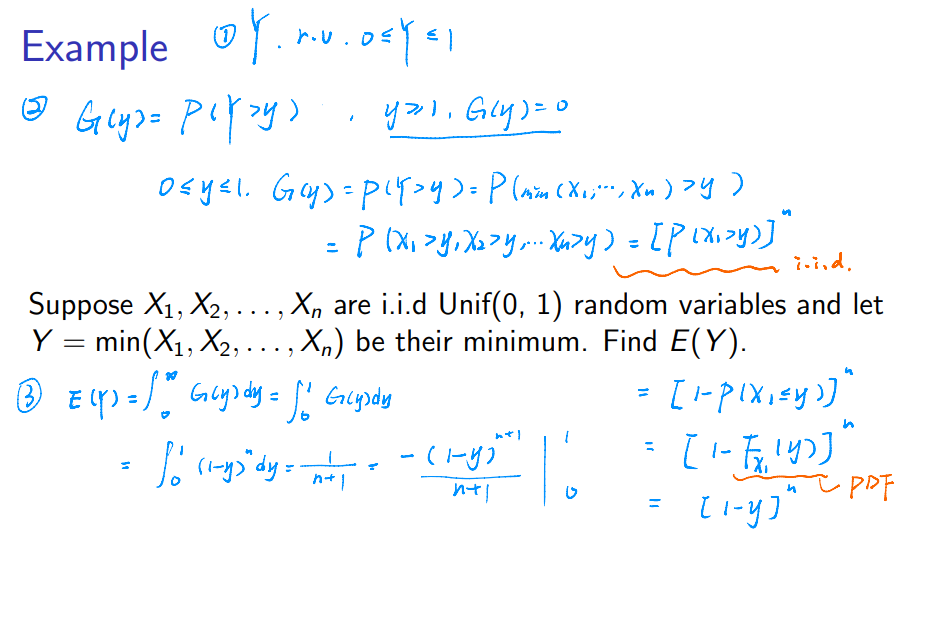 Example ① Y. r.v. 0≤Y≤1
② G(y)= P(Y>y) , y≥1, G(y)=0
0≤y≤1. G(y)=P(Y>y)=P(min(X₁,…,Xₙ)>y)
= P(X₁>y,X₂>y,…Xₙ>y) = [P(X₁>y)]ⁿ
i.i.d.
Suppose X₁, X₂, . . . , Xₙ are i.i.d Unif(0, 1) random variables and let
Y = min(X₁, X₂, . . . , Xₙ) be their minimum. Find E(Y).
③ E(Y)=∫₀^∞ G(y)dy=∫₀¹ G(y)dy
= ∫₀¹ (1-y)ⁿdy = 1/(n+1) = -(1-y)ⁿ⁺¹/(n+1) |₀¹
= [1-P(X₁≤y)]ⁿ
= [1-F_X₁(y)]ⁿ
PDF
= [1-y]ⁿ